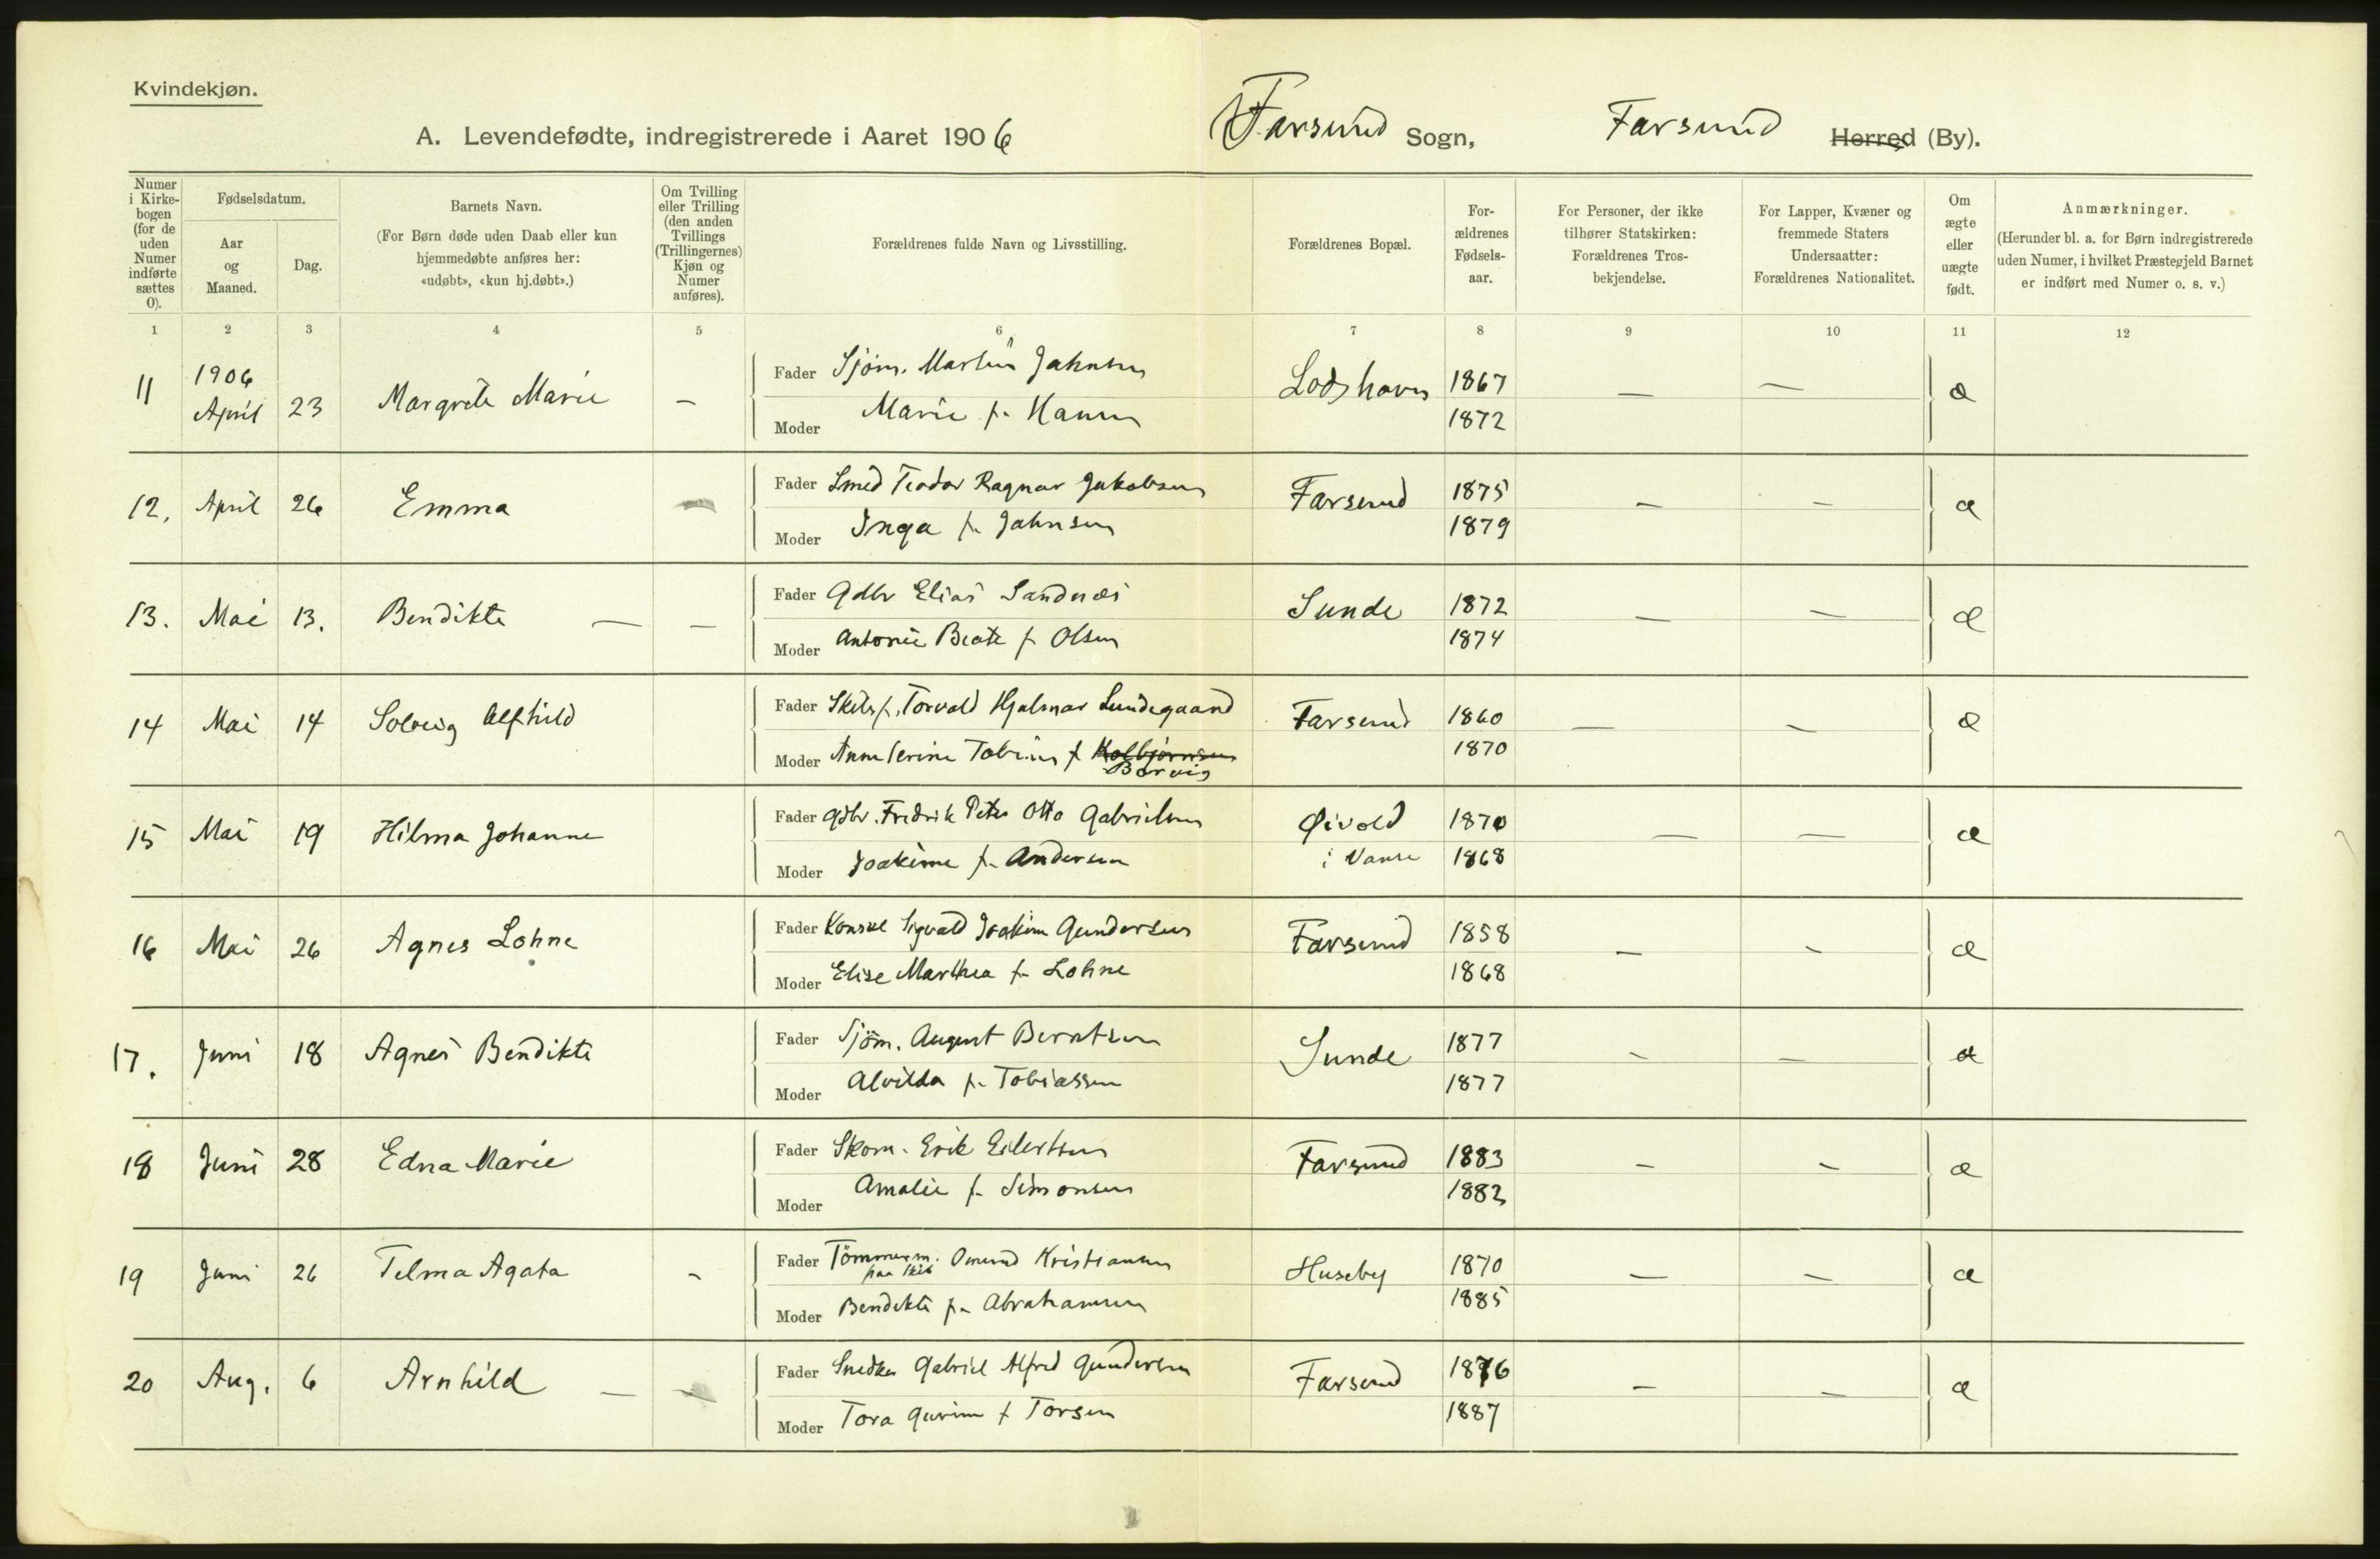 Kvindekjøn.
A. Levendefødte, indregistrerede i Aaret 1906 Farsund Sogn, Farsund Herred (By).
Numer i Kirkebogen (for de uden Numer indførte sættes 0).
Fødselsdatum.
Aar og Maaned.
Dag.
Barnets Navn.
(For Børn døde uden Daab eller kun hjemmedøbte anføres her: «udøbt», «kun hj.døbt».)
Om Tvilling eller Trilling (den anden Tvillings (Trillingernes) Kjøn og Numer anføres).
Forældrenes fulde Navn og Livsstilling.
Forældrenes Bopæl.
Forældrenes Fødselsaar.
For Personer, der ikke tilhører Statskirken: Forældrenes Trosbekjendelse.
For Lapper, Kvæner og fremmede Staters Undersaatter: Forældrenes Nationalitet.
Om ægte eller uægte født.
Anmærkninger.
(Herunder bl. a. for Børn indregistrerede uden Numer, i hvilket Præstegjeld Barnet er indført med Numer o. s. v.)
1 2 3 4 5 6 7 8 9 10 11 12
11 1906 April 23 Margrete Marie – Fader Sjøm. Martin Jahnsen Lodshavn 1867 — — æ
Moder Marie f. Hansen 1872
12. April 26 Emma – Fader Smed Teodor Ragnar Jakobsen Farsund 1875 – – æ
Moder Inga f. Jahnsen 1879
13. Mai 13. Bendikte — – Fader Gdbr Elias Sandnes Sunde 1872 — – æ
Moder Antonie Beate f. Olsen 1874
14 Mai 14 Solveig Alfhild Fader Skibsf. Torvald Hjalmar Lundegaard Farsund 1860 — – æ
Moder Anne Serine Tobine f Kolbjørnsen Borvig 1870
15 Mai 19 Hilma Johanne Fader Gdbr. Fredrik Peter Otto Gabrielsen Øivold i Vanse 1870 — — æ
Moder Joakime f. Andersen 1868
16 Mai 26 Agnes Lohne Fader Konsul Sigvald Joakim Gundersen Farsund 1858 – – æ
Moder Elise Marthea f. Lohne 1868
17. Juni 18 Agnes Bendikte Fader Sjöm. August Berntsen Sunde 1877 – – æ
Moder Alvilda f. Tobiassen 1877
18 Juni 28 Edna Marie Fader Skom. Erik Eilertsen Farsund 1883 – – æ
Moder Amalie f. Simonsen 1882
19 Juni 26 Telma Agata – Fader Tömmerm. paa Skib Omund Kristiansen Huseby 1870 — – æ
Moder Bendikte f. Abrahamsen 1885
20 Aug. 6 Arnhild — – Fader Snedker Gabriel Alfred Gundersen Farsund 1876 – – æ
Moder Tora Gurine f Torsen 1887